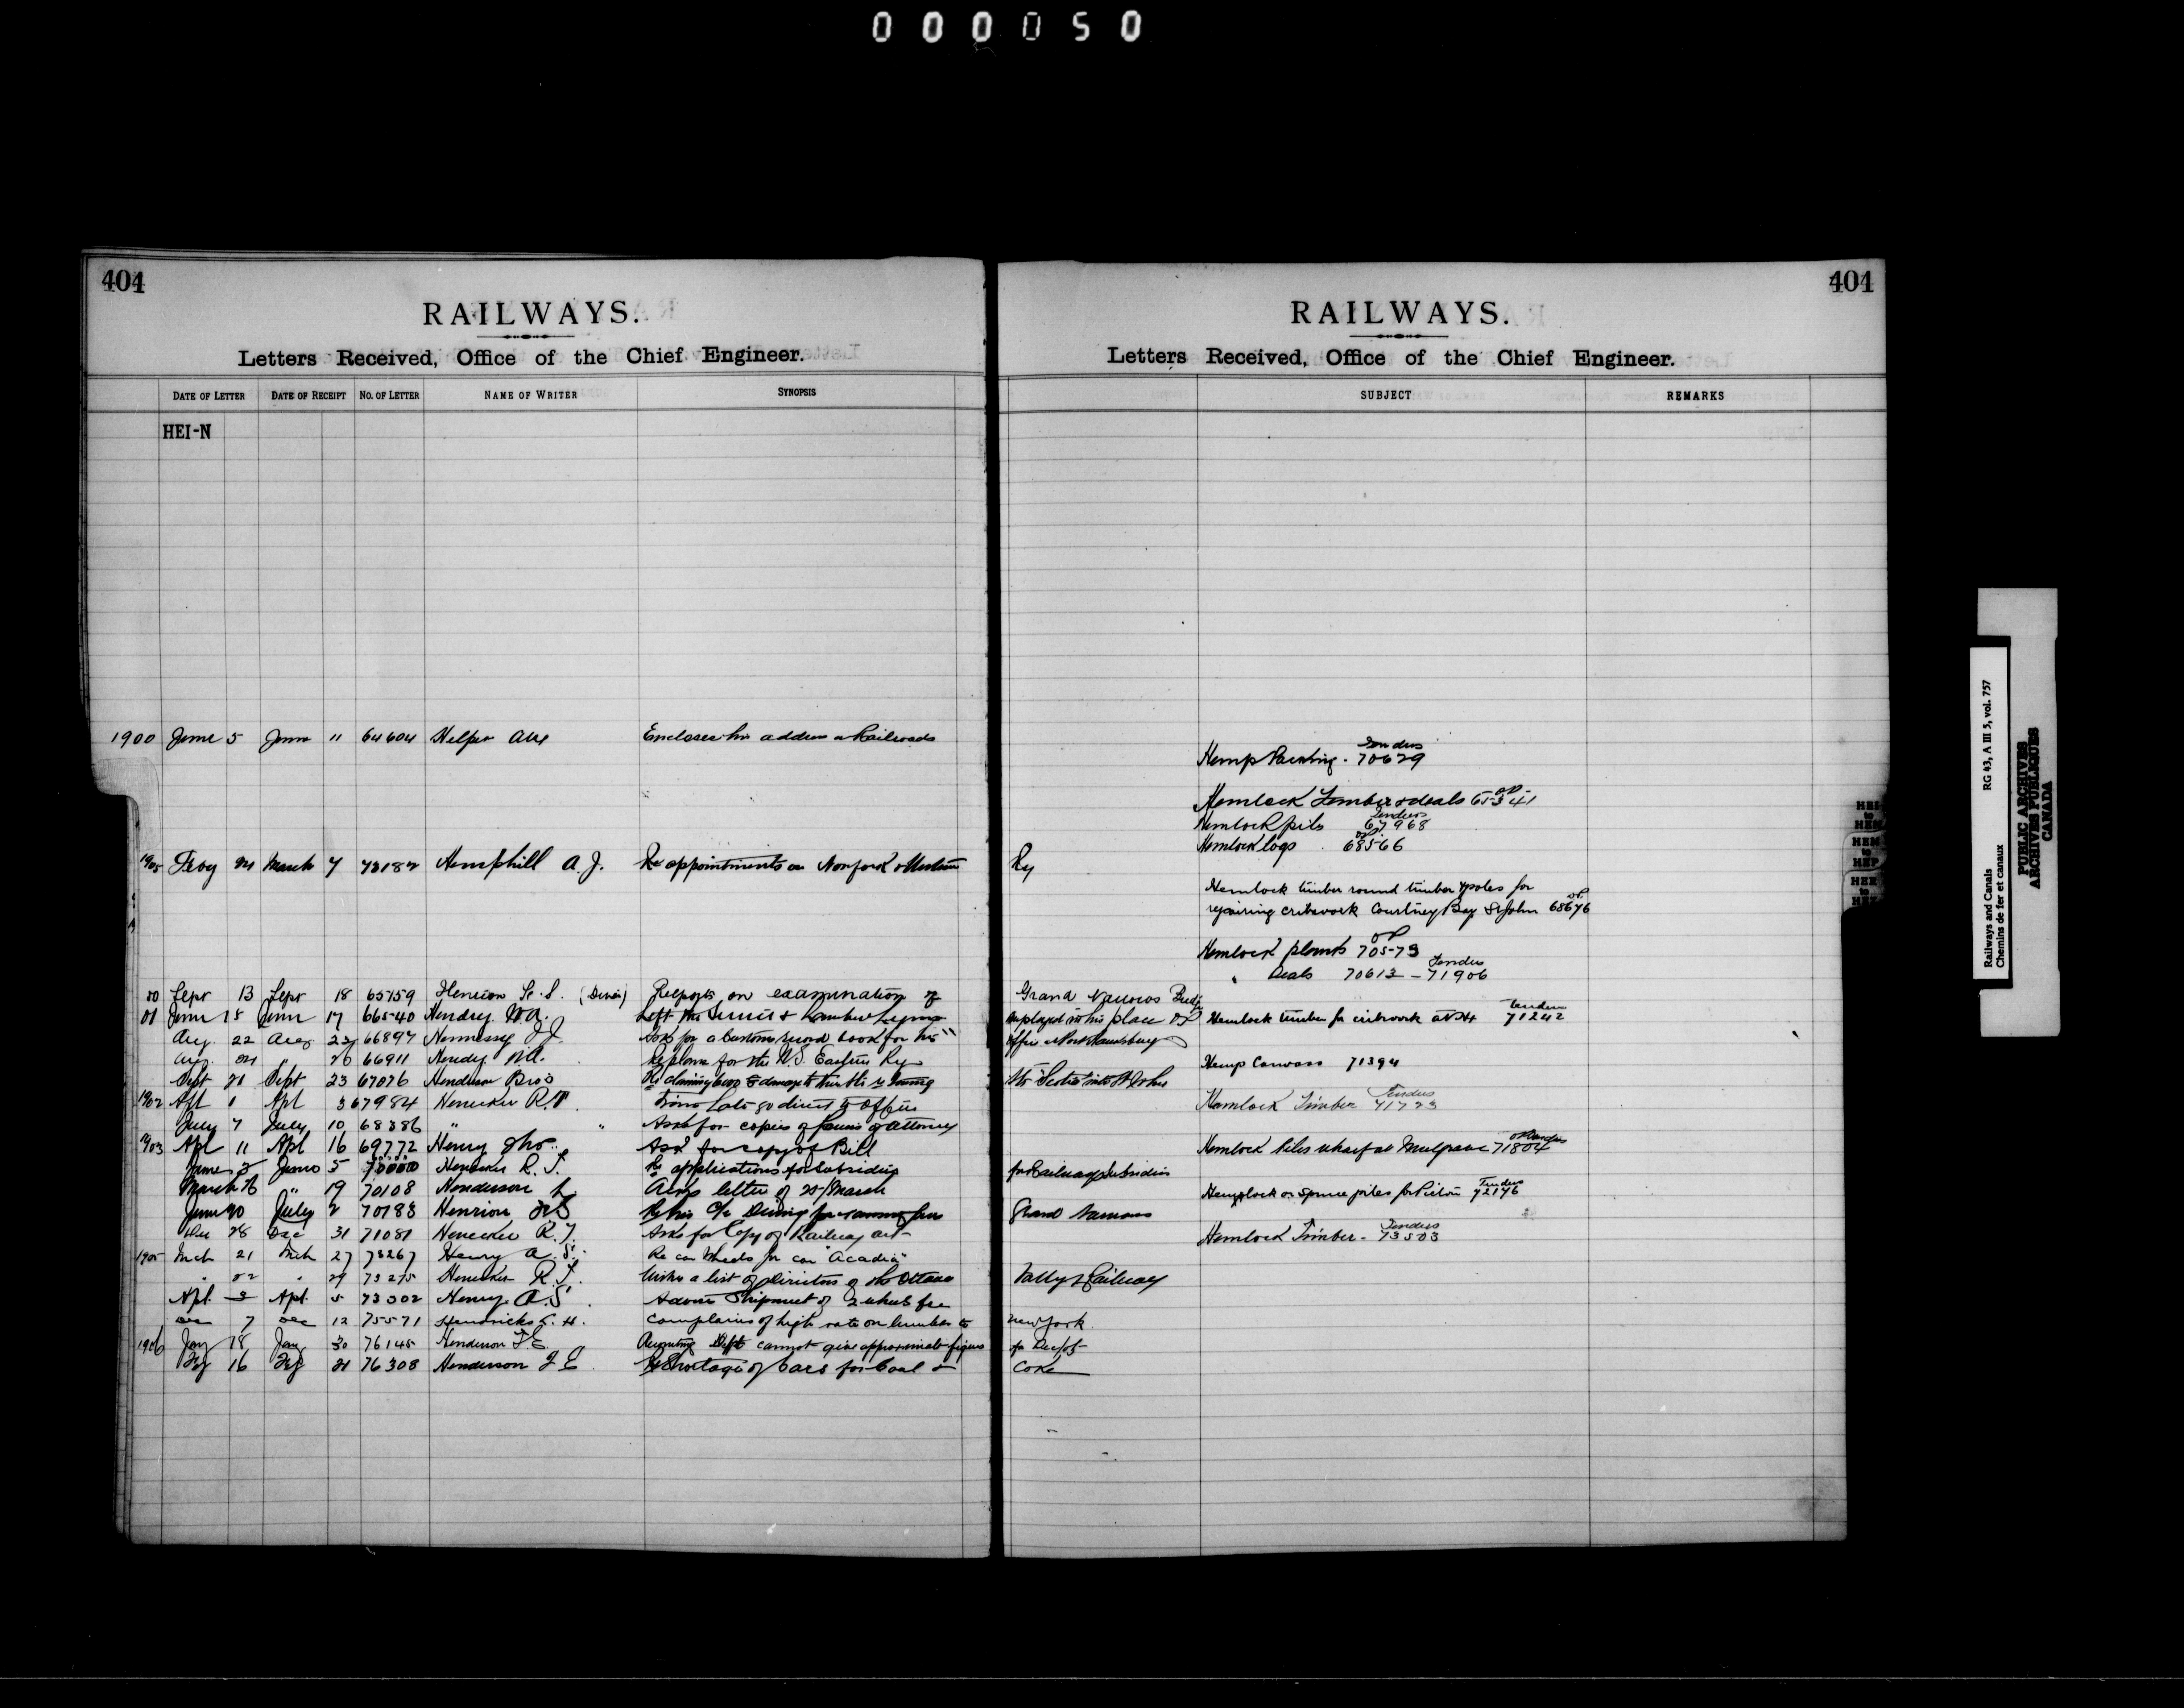 000050
404
RAILWAYS.
Letters Received, Office of the Chief Engineer.
DATE OF LETTER DATE OF RECEIPT NO. OF LETTER NAME OF WRITER SYNOPSIS
HEI-N
1900 June 5 June 11 64604 Helper Encloses his address Railroads
1905 March 7 73182 Hemphill A. J. Re appointments on
00 Sept 13 Sept 18 65159 Henrion Reports on examination of
01 June 15 June 17 66540 Hendry W.A. Left the service &
Aug 22 Aug 66897 Hennessy J J Asks for a customs record book for his
Aug 24 " 26 66911 Hendry W.A. Re plans for the N.S. Eastern Ry
Sept 21 Sept 23 67076 Henderson Bros
1902 Apl 1 Apl 3 67984 Heneker R.T. to Office
July 7 July 10 68386 " " Asks for copies of of attorney
1903 Apl 11 Apl 16 69772 Henry Jno. Ask for copy of Bill
June 3 June 5 70000 Heneker R. T. Re applications for subsidies
March 26 " 19 70108 Henderson Ackgs letter of 25/March
June 20 July 2 70183 Henrion
Dec 28 Dec 31 71081 Heneker R. T. Asks for Copy of Railway act
1905 Mch 21 Mch 27 73267 Henry A. S. Re car Wheels for car "Acadia"
" 22 " 29 73275 Heneker R. T. Wishes a list of directors of the Ottawa
Apl. 3 Apl. 5 73302 Henry A. S. Advise Shipment of 2 wheels for
Dec 7 Dec 12 75571 Hendricks T. H. Complains of high rate on lumber to
1906 Jany 18 Jany 30 76145 Henderson F E Accounting Dept cannot give approximate figures
Fey 16 Fey 21 76308 Henderson F E Re Shortage of Cars for Coal &
404
RAILWAYS.
Letters Received, Office of the Chief Engineer.
SUBJECT REMARKS
Tenders
Hemp Packing - 70629
Hemlock Timber & deals 65341
Tenders
Hemlock piles 67968
Hemlock logs 68566
Ry
Hemlock timber round timber & poles for
repairing cribwork Courtney Bay St John 68676
Hemlock planks 70573
Tenders
" Deals 70613 - 71906
Grand Narrows Bridge
employed in his place Hemlock timber for cribwork 71242
Office
Hemp Canvass 71394
Tenders
Hemlock Timber 71723
Hemlock Piles wharf at Mulgrave 71804
for Railway Subsidies
Tenders
Hemlock or Spruce piles for Pictou 72176
Grand Narrows
Tenders
Hemlock Timber - 73503
Valley Railway
New York
Coke
HEI
to
HEM
HEM
to
HEP
HER
to
Railways and Canals RG 43, A III 5, vol. 757
Chemins de fer et canaux
PUBLIC ARCHIVES
ARCHIVES PUBLIQUES
CANADA